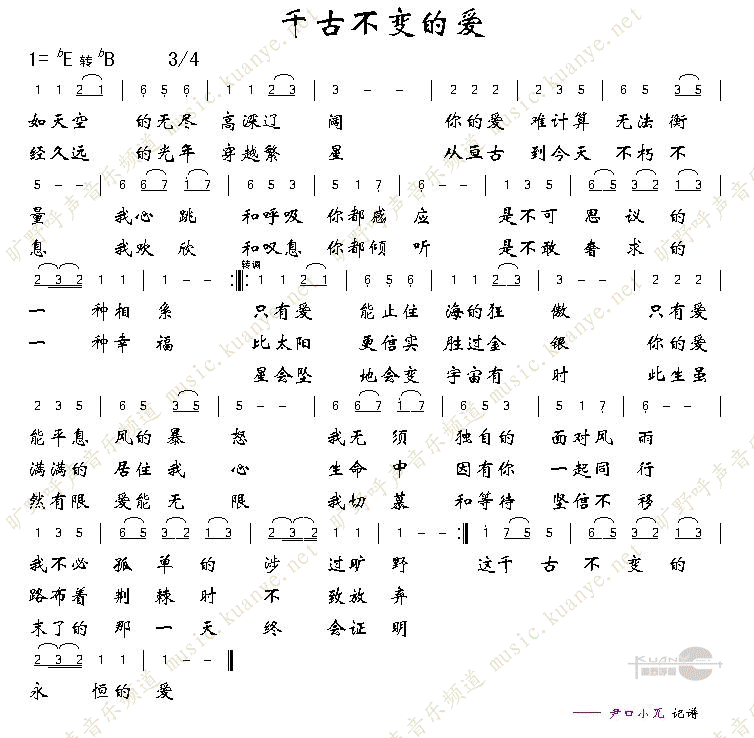 千古不变的爱
1= ᵇE 转 ᵇB 3/4
1 1 2 1 | 6 5 6 | 1 1 2 3 | 3 - - | 2 2 2 | 2 3 5 | 6 5 3 5 |
如天空 的无尽 高深辽 阔 你的爱 难计算 无法衡
经久远 的光年 穿越繁 星 从亘古 到今天 不朽不
5 - - | 6 6 7 1 7 | 6 5 3 | 5 1 7 | 6 - - | 1 2 3 | 6 5 3 2 1 3 |
量 我心跳 和呼吸 你都感应 是不可思议的
息 我欢欣 和叹息 你都倾听 是不敢奢求的
2 3 2 1 1 | 1 - - :‖: 转调 1 1 2 1 | 6 5 6 | 1 1 2 3 | 3 - - | 2 2 2 |
一 种相系 只有爱 能止住 海的狂 傲 只有爱
一 种幸福 比太阳 更信实 胜过金 银 你的爱
星会坠 地会变 宇宙有 时 此生虽
2 3 5 | 6 5 3 5 | 5 - - | 6 6 7 1 7 | 6 5 3 | 5 1 7 | 6 - - |
能平息 风的暴 怒 我无须 独自的 面对风 雨
满满的 居住我 心 生命中 因有你 一起同 行
然有限 爱能无 限 我切慕 和等待 坚信不 移
1 3 5 | 6 5 3 2 1 3 | 2 3 2 1 1 | 1 - - :‖ 1 7 5 5 | 6 5 3 2 1 3 |
我不必 孤单的 涉 过旷野 这千古 不变的
路布着 荆棘时 不 致放弃
末了的 那一天 终 会证明
2 3 2 1 1 | 1 - - ‖
永 恒的爱
KUANYE
—— 尹口小兀 记谱
旷野呼声音乐频道 music.kuanye.net